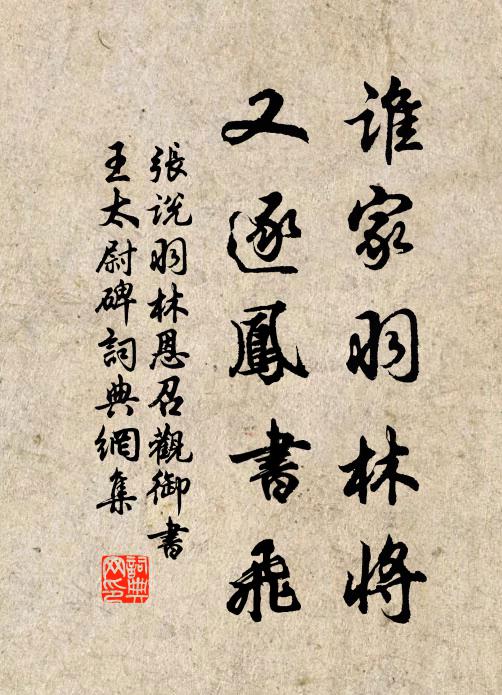 誰家羽林將
又逐鳳書飛
張說羽林恩召觀御書
王太尉碑詞典網集
詞典網印